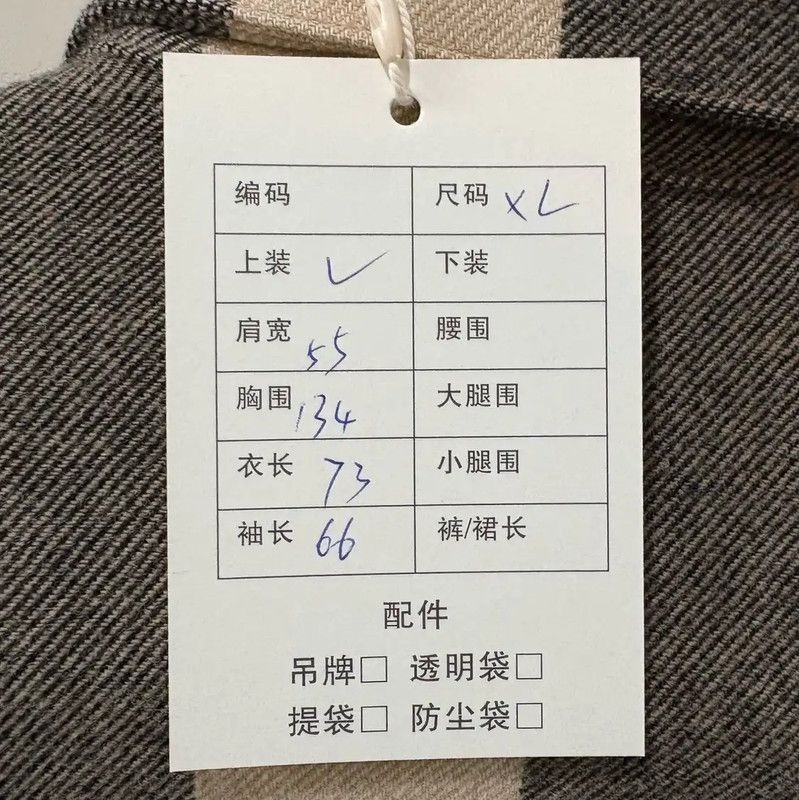 编码 尺码 XL
上装 ✓ 下装
肩宽 55 腰围
胸围 134 大腿围
衣长 73 小腿围
袖长 66 裤/裙长
配件
吊牌□ 透明袋□
提袋□ 防尘袋□